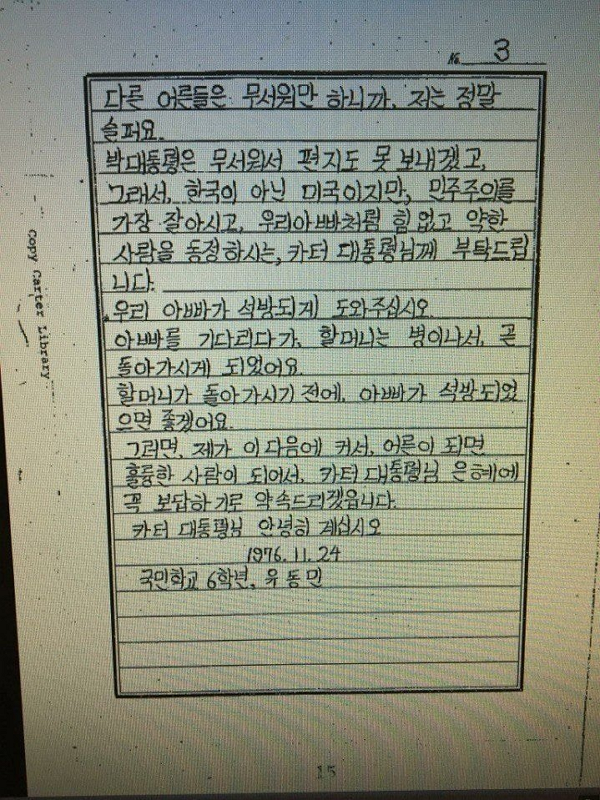 № 3
다른 어른들은 무서워만 하니까, 저는 정말
슬퍼요.
박대통령은 무서워서 편지도 못 보내겠고,
그래서, 한국이 아닌 미국이지만, 민주주의를
가장 잘아시고, 우리아빠처럼 힘없고 약한
사람을 동정하시는, 카터 대통령님께 부탁드립
니다.
우리 아빠가 석방되게 도와주십시오.
아빠를 기다리다가, 할머니는 병이나서, 곧
돌아가시게 되었어요.
할머니가 돌아가시기 전에, 아빠가 석방되었
으면 좋겠어요.
그러면, 제가 이 다음에 커서, 어른이 되면
훌륭한 사람이 되어서, 카터대통령님 은혜에
꼭 보답하기로 약속드리겠읍니다.
카터 대통령님 안녕히 계십시오
1976. 11. 24
국민학교 6학년, 유동민
Copy Carter Library
15